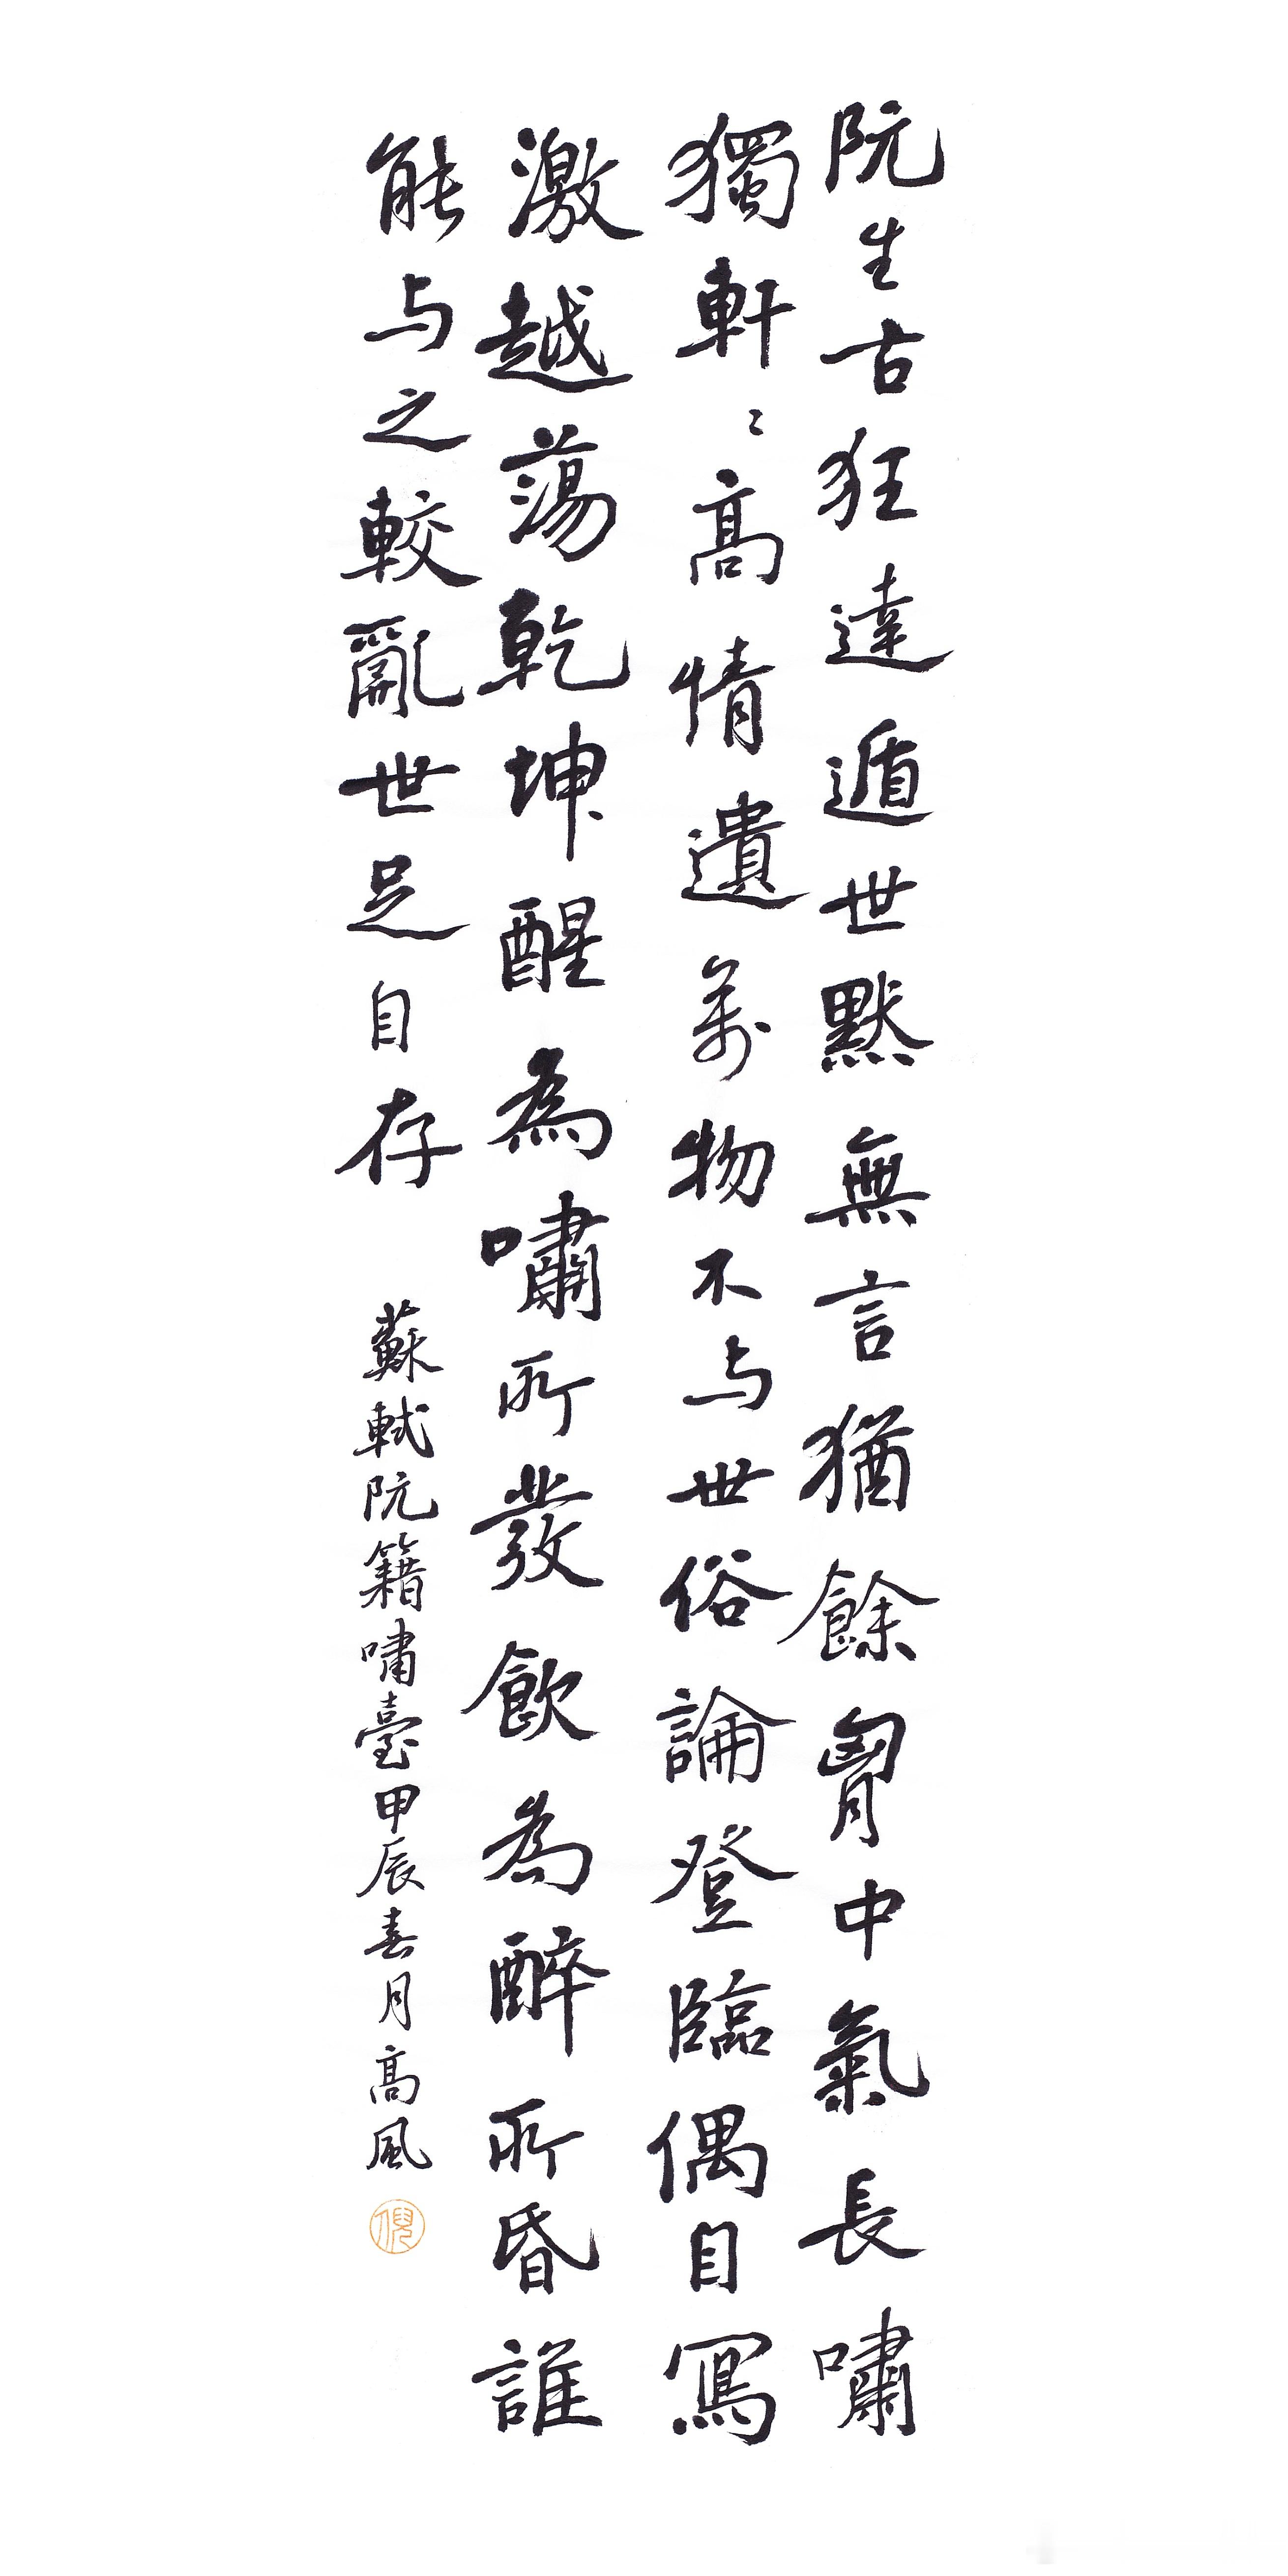 阮生古狂達遁世默無言猶餘胷中氣長嘯
獨軒〻高情遺萬物不与世俗論登臨偶自寫
激越蕩乾坤醒為嘯所發飲為醉所昏誰
能与之較亂世足自存
蘇軾阮籍嘯臺甲辰春月高風
倪